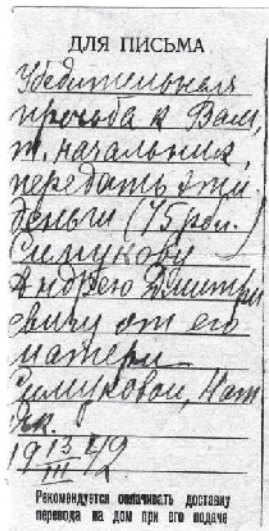 ДЛЯ ПИСЬМА
Убедительная
просьба к Вам,
т. начальник,
передать эти
деньги (75 рбл.)
Симукову
Андрею Дмитри
евичу от его
матери
Симуковой, Нат
19 13/III 42
Рекомендуется оплачивать доставку
перевода на дом при его подаче